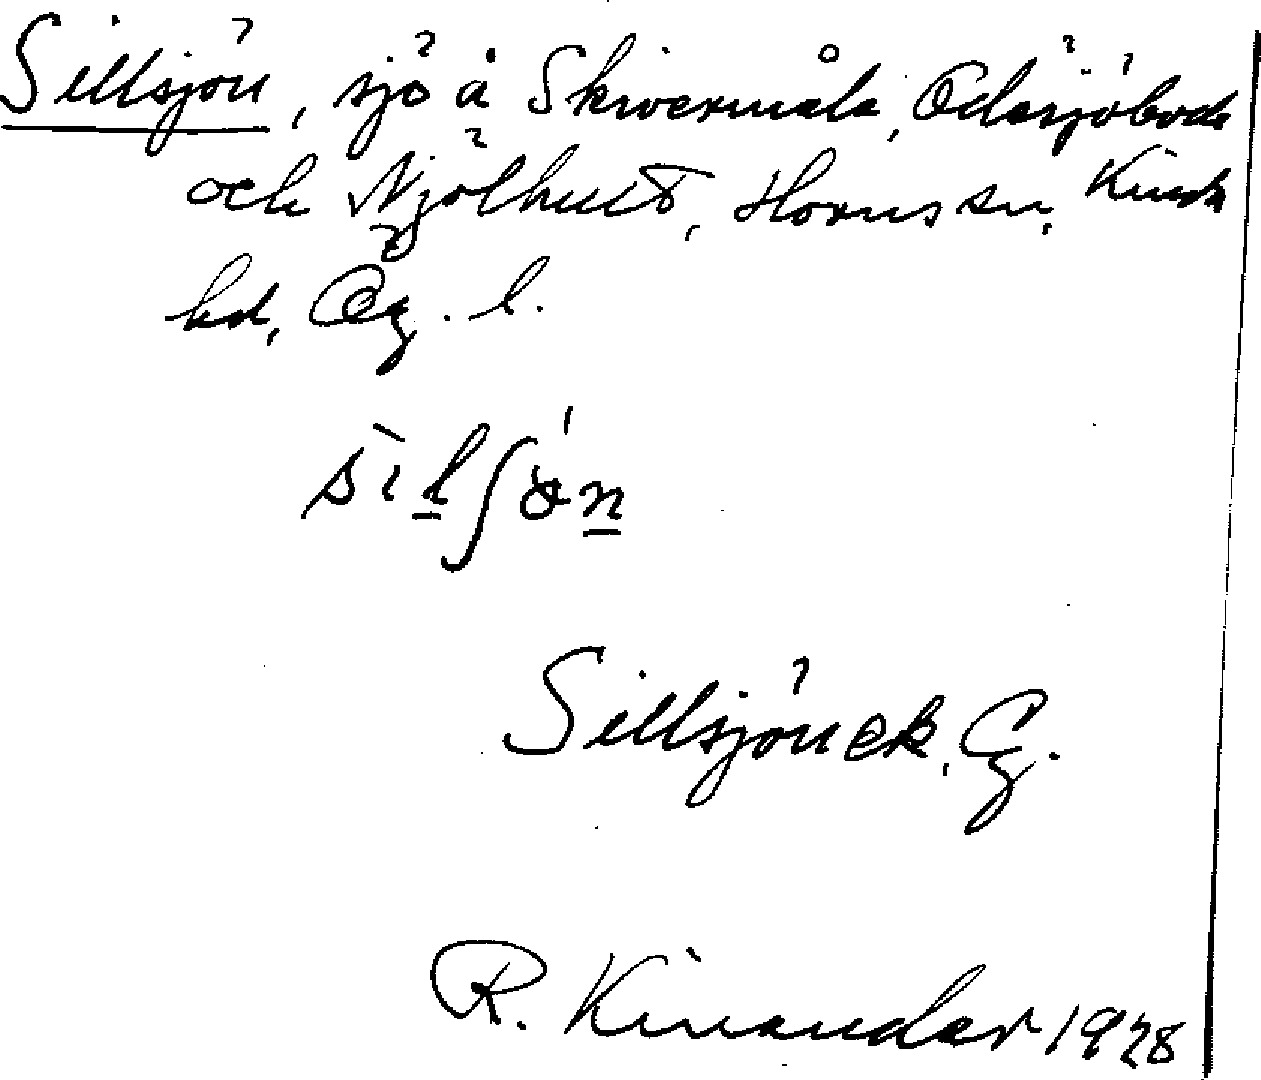 Sillsjön, sjö å Skivermåla, Ödesjöboda
och Njölhult, Horns sn, Kinda
hd, Ög. l.
sìlʃön
Sillsjön ek, G.
R. Kinander 1928